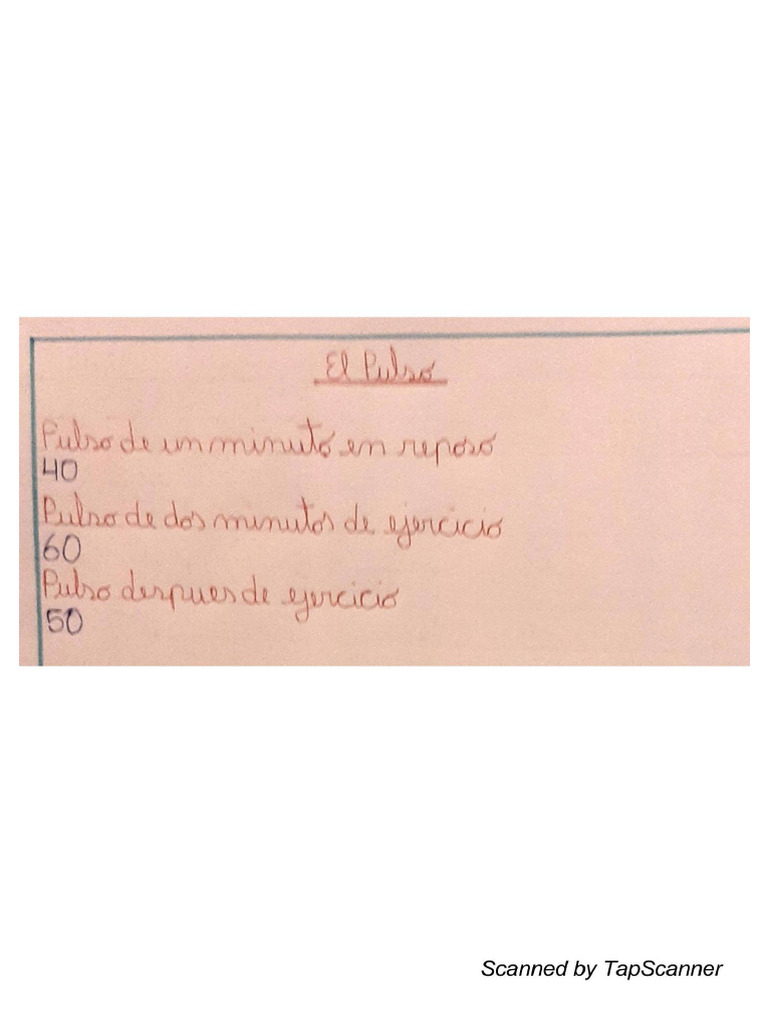 El Pulso
Pulso de un minuto en reposo
40
Pulso de dos minutos de ejercicio
60
Pulso despues de ejercicio
50
Scanned by TapScanner